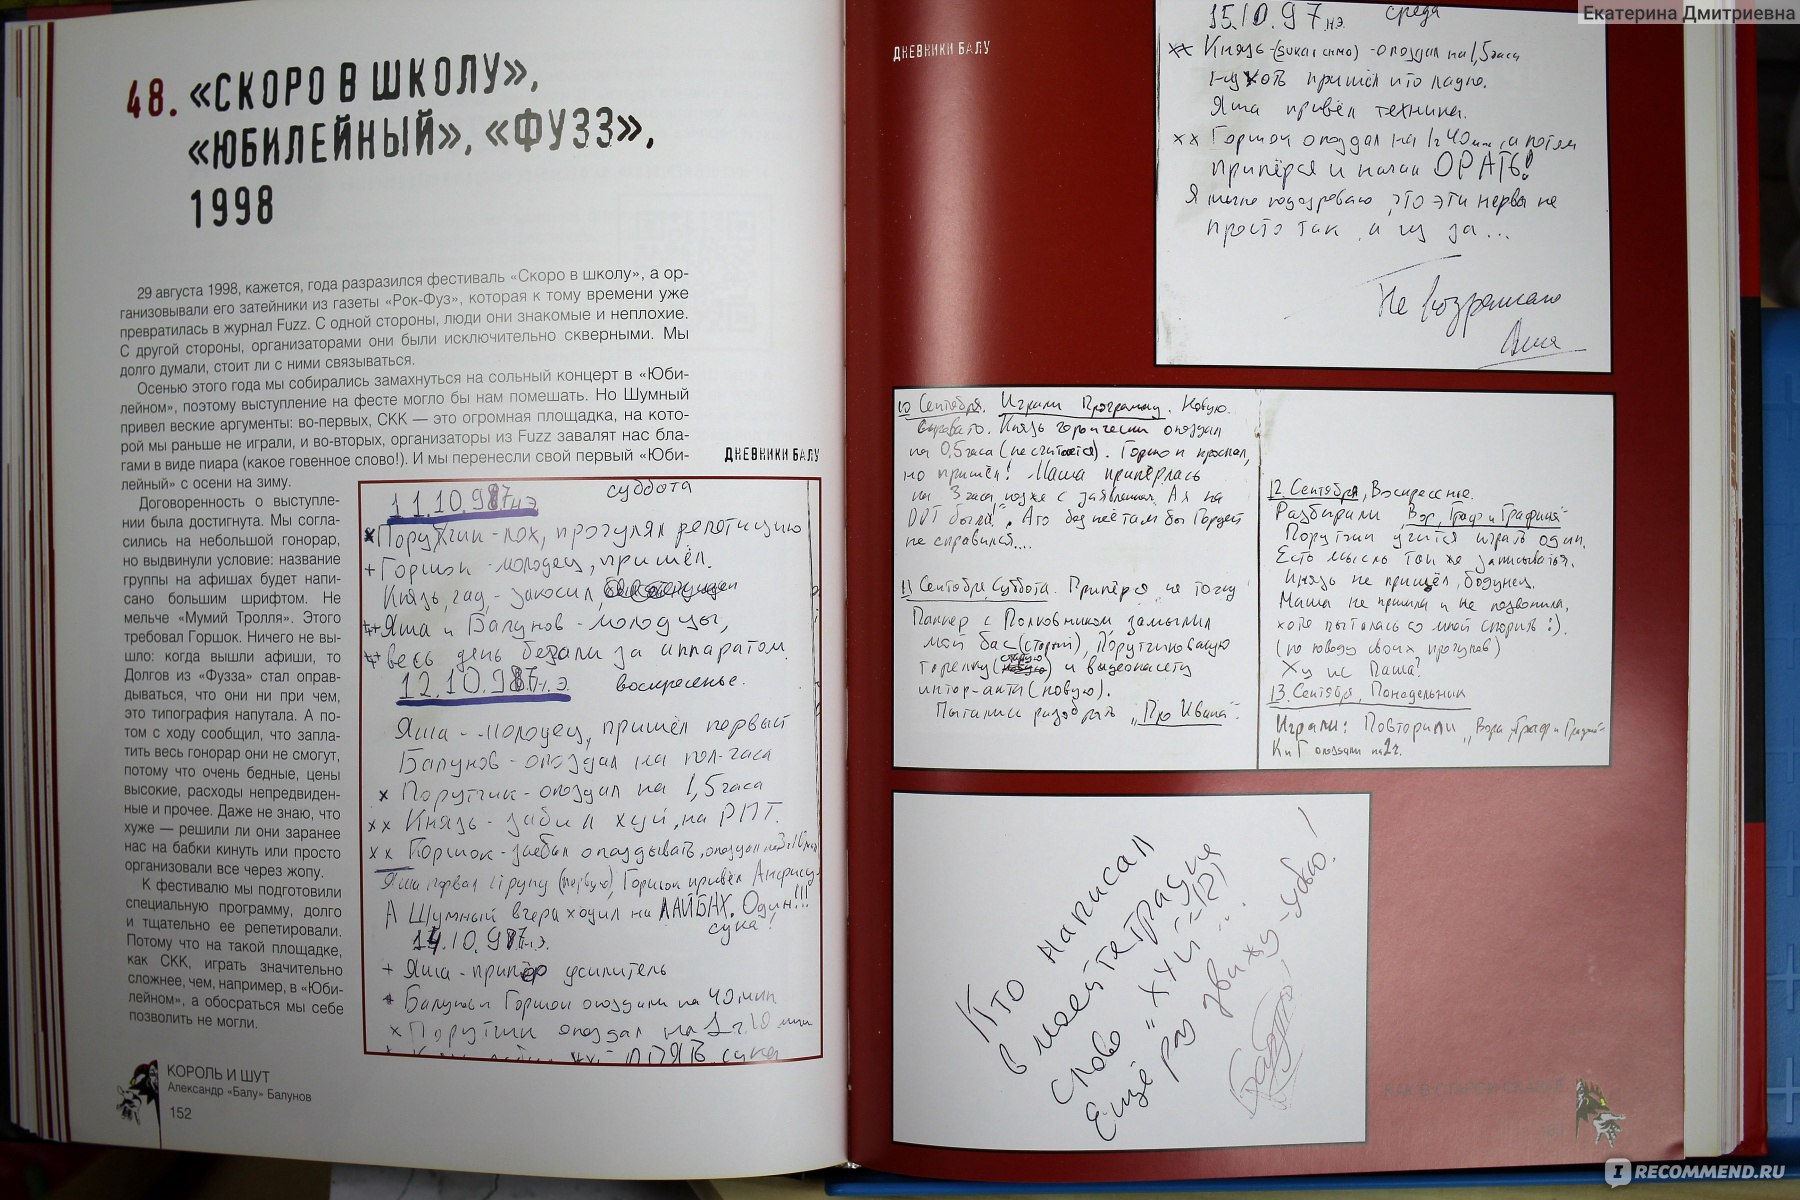 48. «СКОРО В ШКОЛУ»,
«ЮБИЛЕЙНЫЙ», «ФУЗЗ»,
1998
29 августа 1998, кажется, года разразился фестиваль «Скоро в школу», а ор-
ганизовывали его затейники из газеты «Рок-Фуз», которая к тому времени уже
превратилась в журнал Fuzz. С одной стороны, люди они знакомые и неплохие.
С другой стороны, организаторами они были исключительно скверными. Мы
долго думали, стоит ли с ними связываться.
Осенью этого года мы собирались замахнуться на сольный концерт в «Юби-
лейном», поэтому выступление на фесте могло бы нам помешать. Но Шумный
привел веские аргументы: во-первых, СКК — это огромная площадка, на кото-
рой мы раньше не играли, и во-вторых, организаторы из Fuzz завалят нас бла-
гами в виде пиара (какое говенное слово!). И мы перенесли свой первый «Юби-
лейный» с осени на зиму.
Договоренность о выступле-
нии была достигнута. Мы согла-
сились на небольшой гонорар,
но выдвинули условие: название
группы на афишах будет напи-
сано большим шрифтом. Не
мельче «Мумий Тролля». Этого
требовал Горшок. Ничего не вы-
шло: когда вышли афиши, то
Долгов из «Фузза» стал оправ-
дываться, что они ни при чем,
это типография напутала. А по-
том с ходу сообщил, что запла-
тить весь гонорар они не смогут,
потому что очень бедные, цены
высокие, расходы непредвиден-
ные и прочее. Даже не знаю, что
хуже — решили ли они заранее
нас на бабки кинуть или просто
организовали все через жопу.
К фестивалю мы подготовили
специальную программу, долго
и тщательно ее репетировали.
Потому что на такой площадке,
как СКК, играть значительно
сложнее, чем, например, в «Юби-
лейном», а обосраться мы себе
позволить не могли.
ДНЕВНИКИ БАЛУ
11.10.97 н.э. суббота
× Поручик - лох, прогулял репетицию
+ Горшок - молодец, пришёл.
Князь, гад, - закосил,
++ Яша и Балунов - молодцы,
++ весь день бегали за аппаратом.
12.10.97 н.э воскресенье.
Яша - молодец, пришёл первый
Балунов - опоздал на пол-часа
× Поручик - опоздал на 1,5 часа
×× Князь - забил хуй, на РПТ.
×× Горшок - заебал опаздывать, опоздал на
Яша порвал струну (первую), Горшок привёл Анфису
А Шумный вчера ходил на ЛАЙБАХ. Один!!!
сука!
14.10.97 н.э.
+ Яша - припёр усилитель
+ Балунов и Горшок опоздали на 40 мин
× Поручик опоздал на 1 ч. 10 мин
ОПЯТЬ, сука
КОРОЛЬ И ШУТ
Александр «Балу» Балунов
152
ДНЕВНИКИ БАЛУ
15.10.97 н.э. среда
×× Князь - опоздал на 1,5 часа
ну хоть пришёл и то ладно.
Яша привёл техника.
×× Горшок опоздал на 1 ч 40 мин, а потом
припёрся и начал ОРАТЬ!
Я лично подозреваю, что эти нервы не
просто так, а из за...
Не возражаю
Яша
10 Сентября. Играли Программу. Новую.
Князь героически опоздал
на 0,5 часа (не считается). Горшок проспал,
но пришёл! Маша припёрлась
на 3 часа позже с заявлением „А я на
РПТ была!". А то без неё там бы Гордей
не справился....
11 Сентября, Суббота. Припёрся на точку
Панкер с Полковником замылил
мой бас (старый), Поручиковскую
горелку и видеокасету
интер-акта (новую).
Пытались разобрать „Про Ивана".
12 Сентября, Воскресенье.
Разбирали „Вор, Граф и Графиня"
Поручик учится играть один.
Есть мысль так же записываться.
Князь не пришёл, бодунец.
Маша не пришла и не позвонила,
хотя пыталась со мной спорить :).
(по поводу своих прогулов)
Ху из Паша?
13. Сентября, Понедельник
Играли: Повторили „Вора, Граф и Графиня"
К и Г опоздали на 1 ч.
Кто написал
в моей тетрадке
слово „ХХИЙ"(-12)?
...
Ещё раз увижу - убью!
Екатерина Дмитриевна
IRECOMMEND.RU